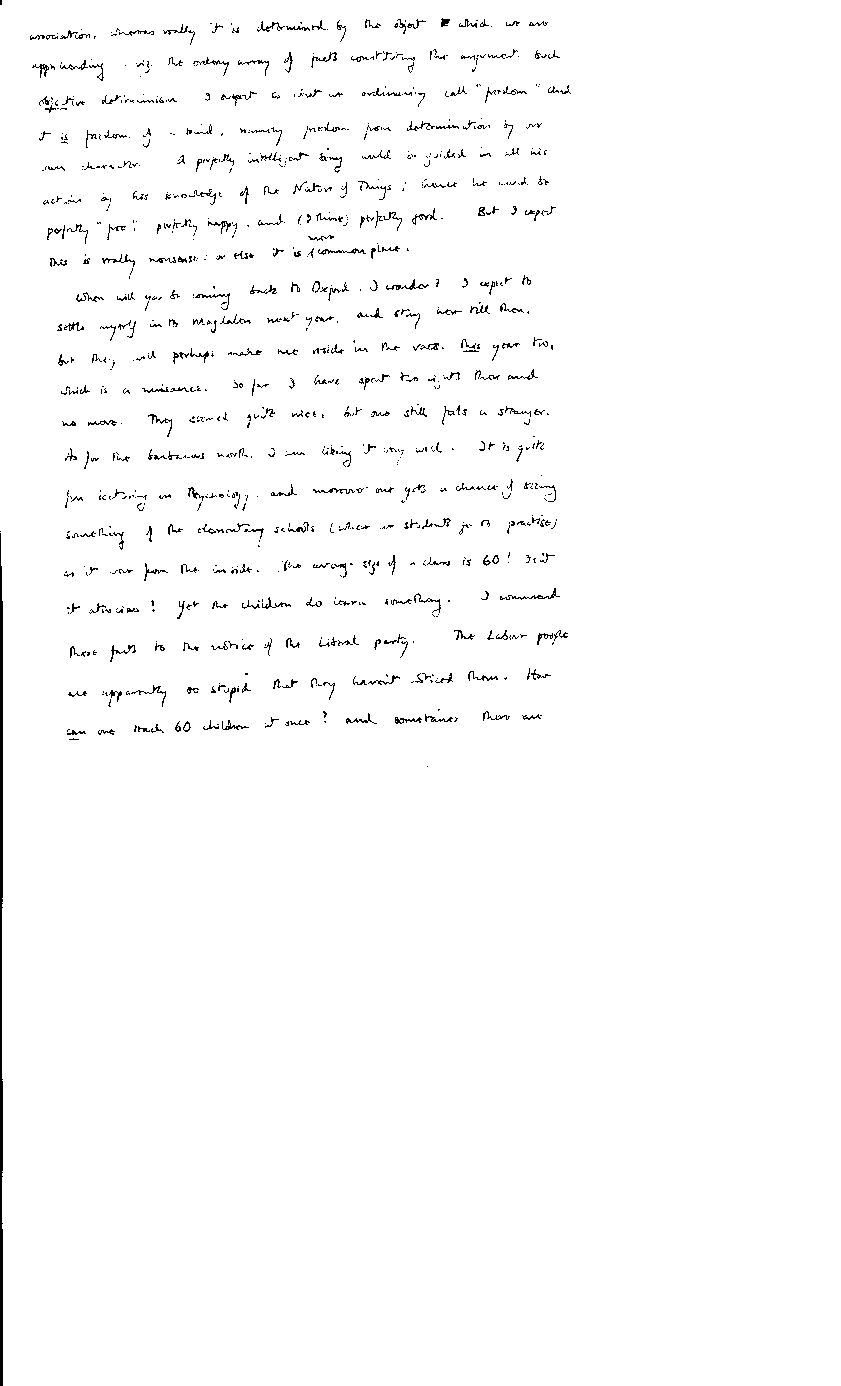 association, whereas really it is determined by the object which we are
apprehending, viz. the ordery array of facts constituting the argument. Such
objective determinism I expect is what we ordinarily call "freedom" and
it is freedom of a kind, namely freedom from determination by our
own character. A perfectly intelligent being would be guided in all his
actions by his knowledge of the Nature of Things; hence he would be
perfectly "free", perfectly happy, and (I think) perfectly good. But I expect
this is really nonsense: or else it is mere commonplace.
When will you be coming back to Oxford, I wonder? I expect to
settle myself in to Magdalen next year, and stay here till then.
but they will perhaps make me reside in the vacs. this year too,
which is a nuisance. So far I have spent two nights there and
no more. They seemed quite nice, but one still feels a stranger.
As for the barbarous north, I am liking it very well. It is quite
fun lecturing on Psychology, and moreover one gets a chance of seeing
something of the elementary schools (where our students go to practise)
as it were from the inside. The average size of a class is 60! Isn't
it atrocious? Yet the children do learn something. I commend
these facts to the notice of the Liberal party. The Labour people
are apparently so stupid that they haven't noticed them. How
can one teach 60 children at once? and sometimes there are